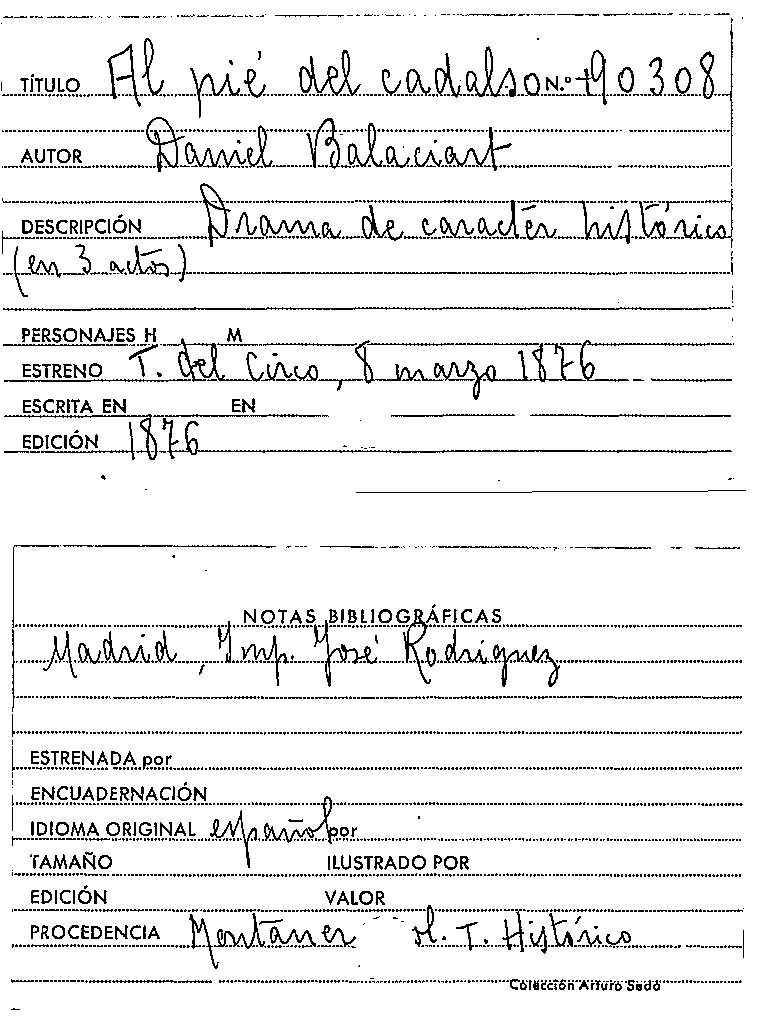 TÍTULO Al pié del cadalso N.º 90308
AUTOR Daniel Balaciart
DESCRIPCIÓN Drama de caractér histórico
(en 3 actos)
PERSONAJES H M
ESTRENO T. del Circo, 8 marzo 1876
ESCRITA EN EN
EDICIÓN 1876
NOTAS BIBLIOGRÁFICAS
Madrid, Imp. José Rodriguez
ESTRENADA por
ENCUADERNACIÓN
IDIOMA ORIGINAL español por
TAMAÑO ILUSTRADO POR
EDICIÓN VALOR
PROCEDENCIA Montaner T. Histórico
Colección Arturo Sedó